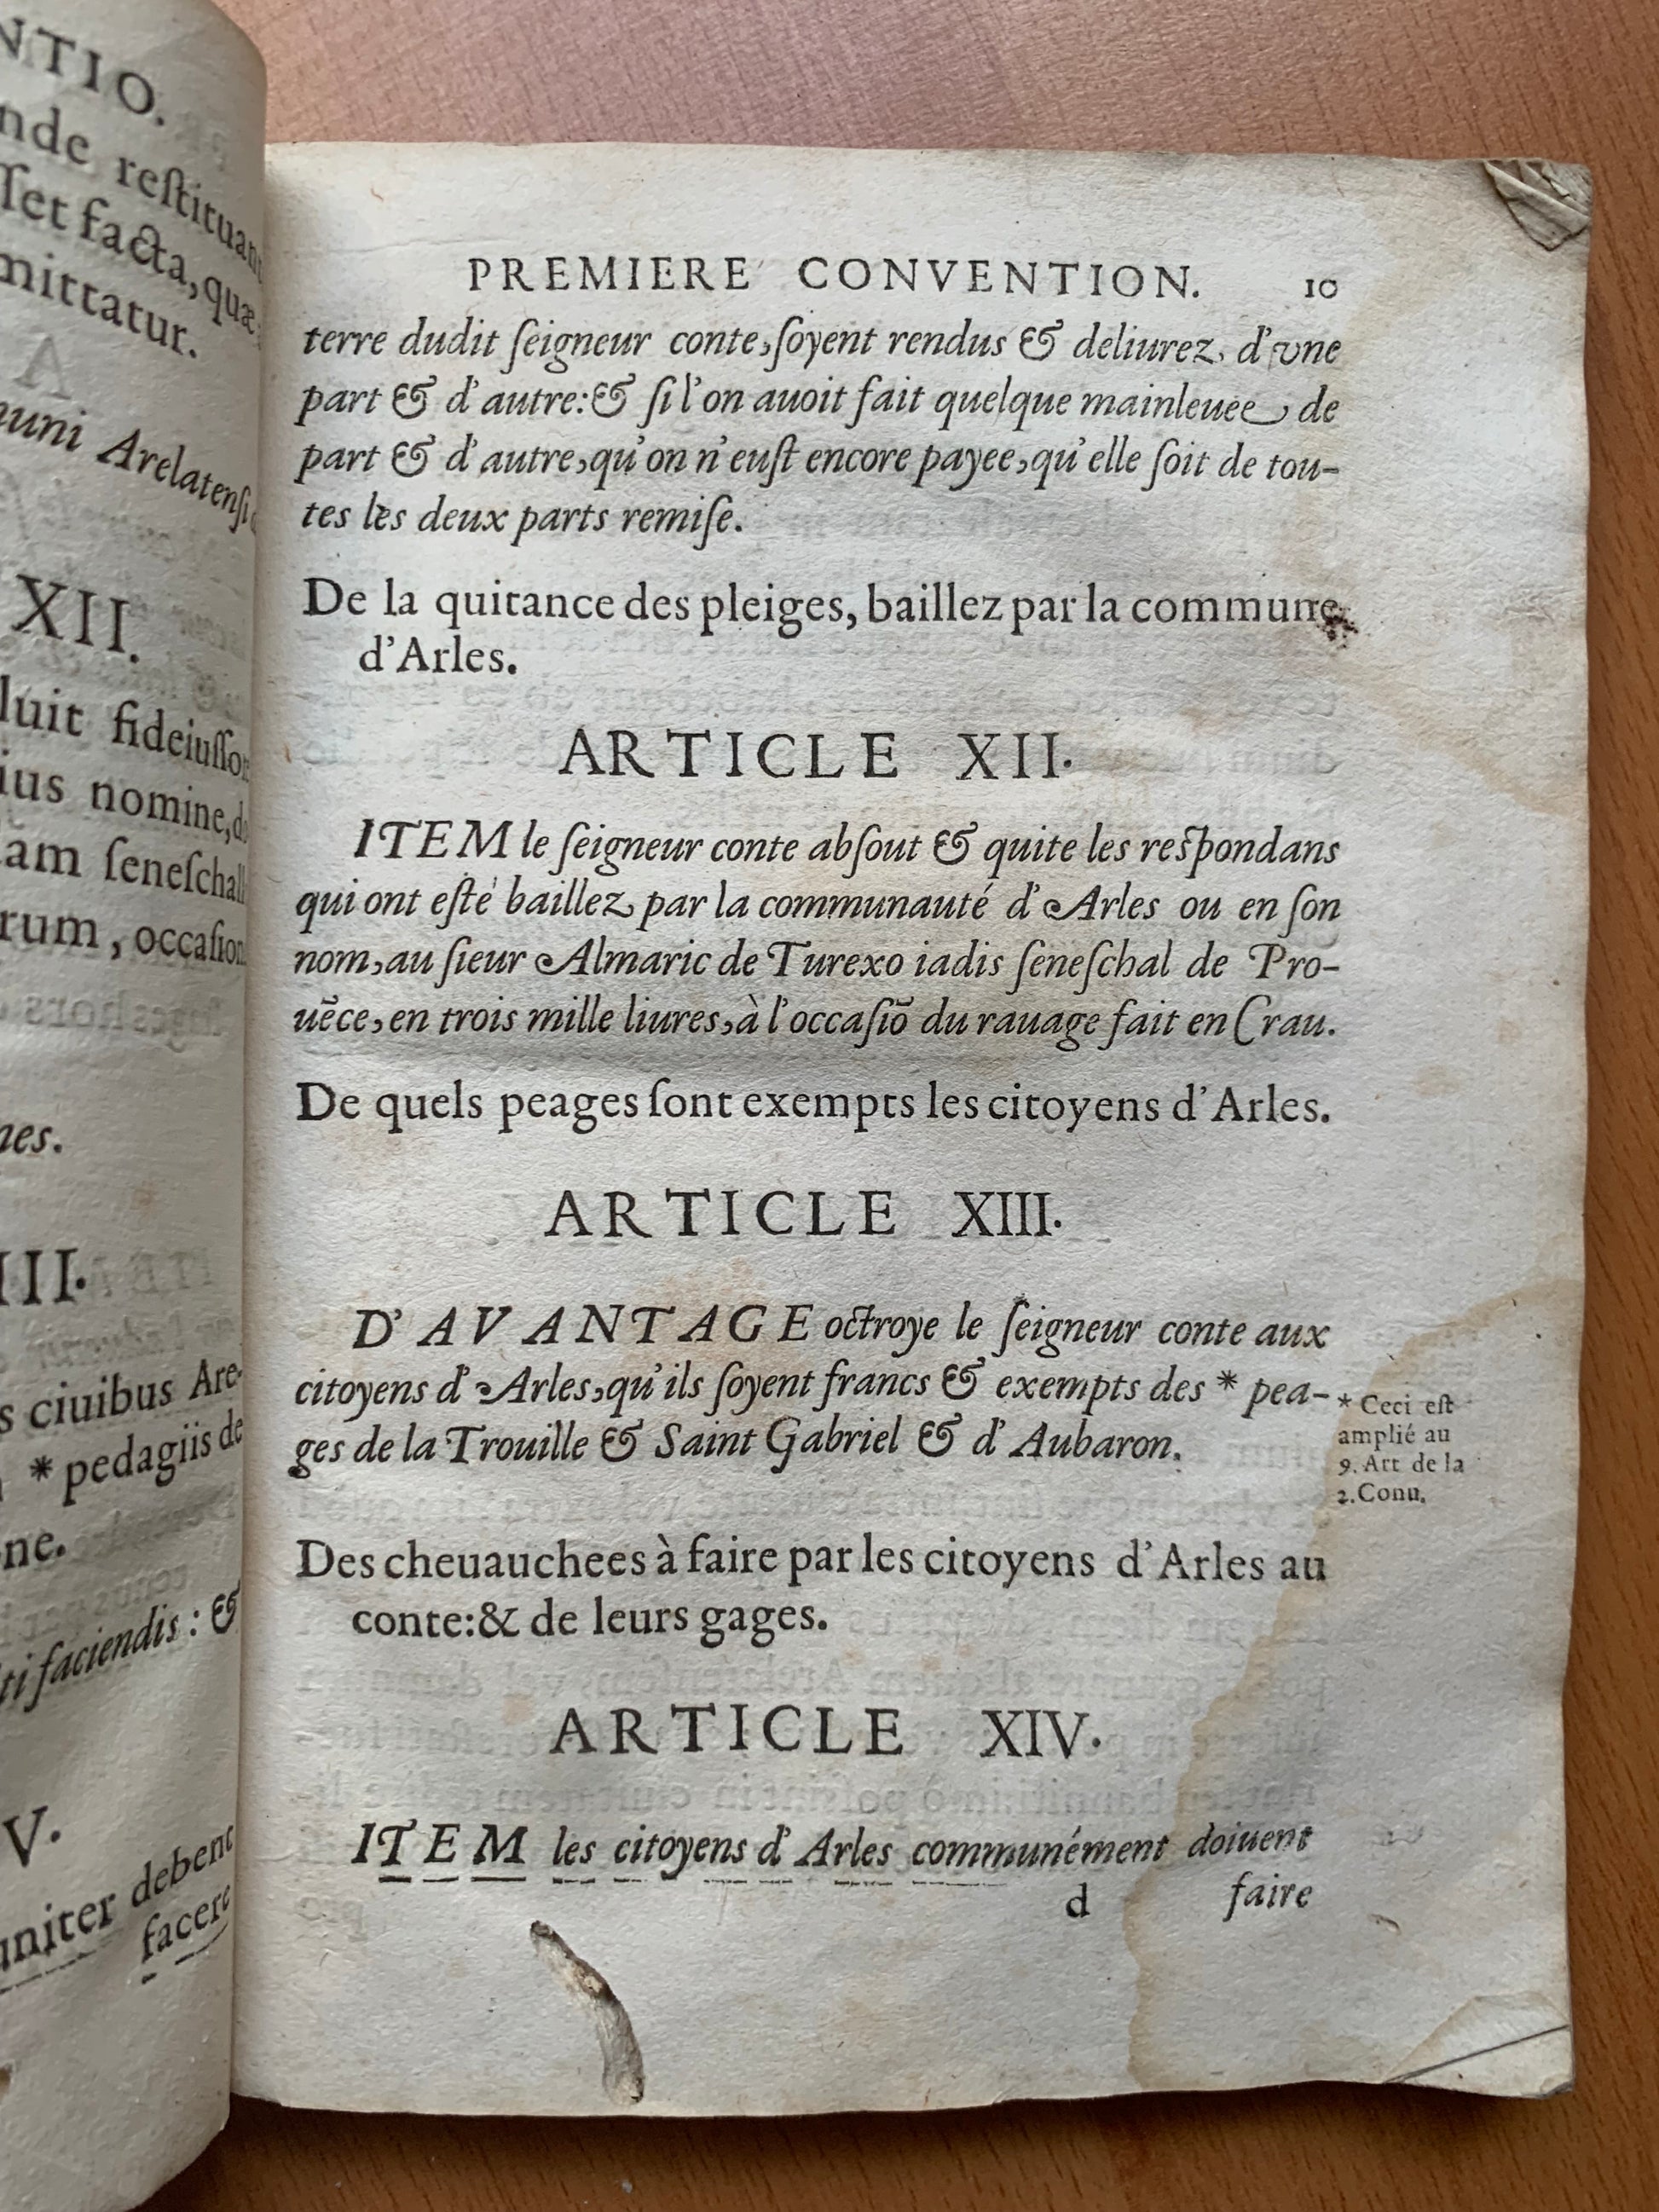 NTIO.
nde reſtituant
ſſet facta, quæ
mittatur.
muni Arelatenſi
XII.
luit fideiuſſor
ius nomine, d
am ſeneſchall
rum, occaſion
nes.
III.
s ciuibus Are-
* pedagiis de
ne.
ti faciendis: &
V.
uniter debent
facere
PREMIERE CONVENTION. 10
terre dudit ſeigneur conte, ſoyent rendus & deliurez, d'vne
part & d'autre: & ſi l'on auoit fait quelque mainleuee de
part & d'autre, qu'on n'euſt encore payee, qu'elle ſoit de tou-
tes les deux parts remiſe.
De la quitance des pleiges, baillez par la commune
d'Arles.
ARTICLE XII.
ITEM le ſeigneur conte abſout & quite les reſpondans
qui ont eſté baillez par la communauté d'Arles ou en ſon
nom, au ſieur Almaric de Turexo iadis ſeneſchal de Pro-
uēce, en trois mille liures, à l'occaſiō du rauage fait en Crau.
De quels peages ſont exempts les citoyens d'Arles.
ARTICLE XIII.
D'AVANTAGE octroye le ſeigneur conte aux
citoyens d'Arles, qu'ils ſoyent francs & exempts des * pea-
ges de la Trouille & Saint Gabriel & d'Aubaron.
* Ceci eſt
amplié au
9. Art de la
2. Conu.
Des cheuauchees à faire par les citoyens d'Arles au
conte: & de leurs gages.
ARTICLE XIV.
ITEM les citoyens d'Arles communément doiuent
d faire